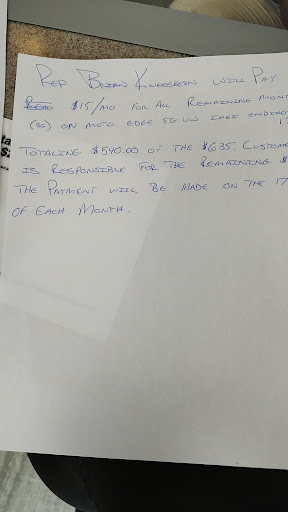 Rep Brian Kufeskern will Pay
$15/mo for all Remaining Mont
(36) on Moto Edge 5G UW IMEI ending
Totaling $540.00 of the $635. Custome
is Responsible for the Remaining $
The Payment will be made on the 17
of each Month.